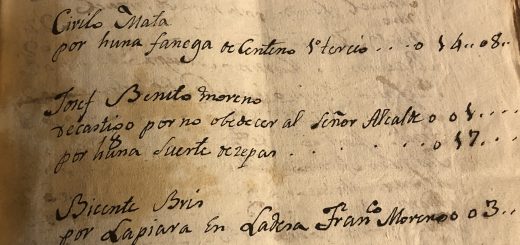 Cirilo Mata
por huna fanega de Centeno 1º tercio . . . 0 14..08..
Josef Benito moreno
de castigo por no obedecer al señor Alcalde 0 01....
por huna suerte de zepas . . . . . . 0 17...
Bicente Bris
por Lapiara En Ladesa Franco Moreno 0 03..